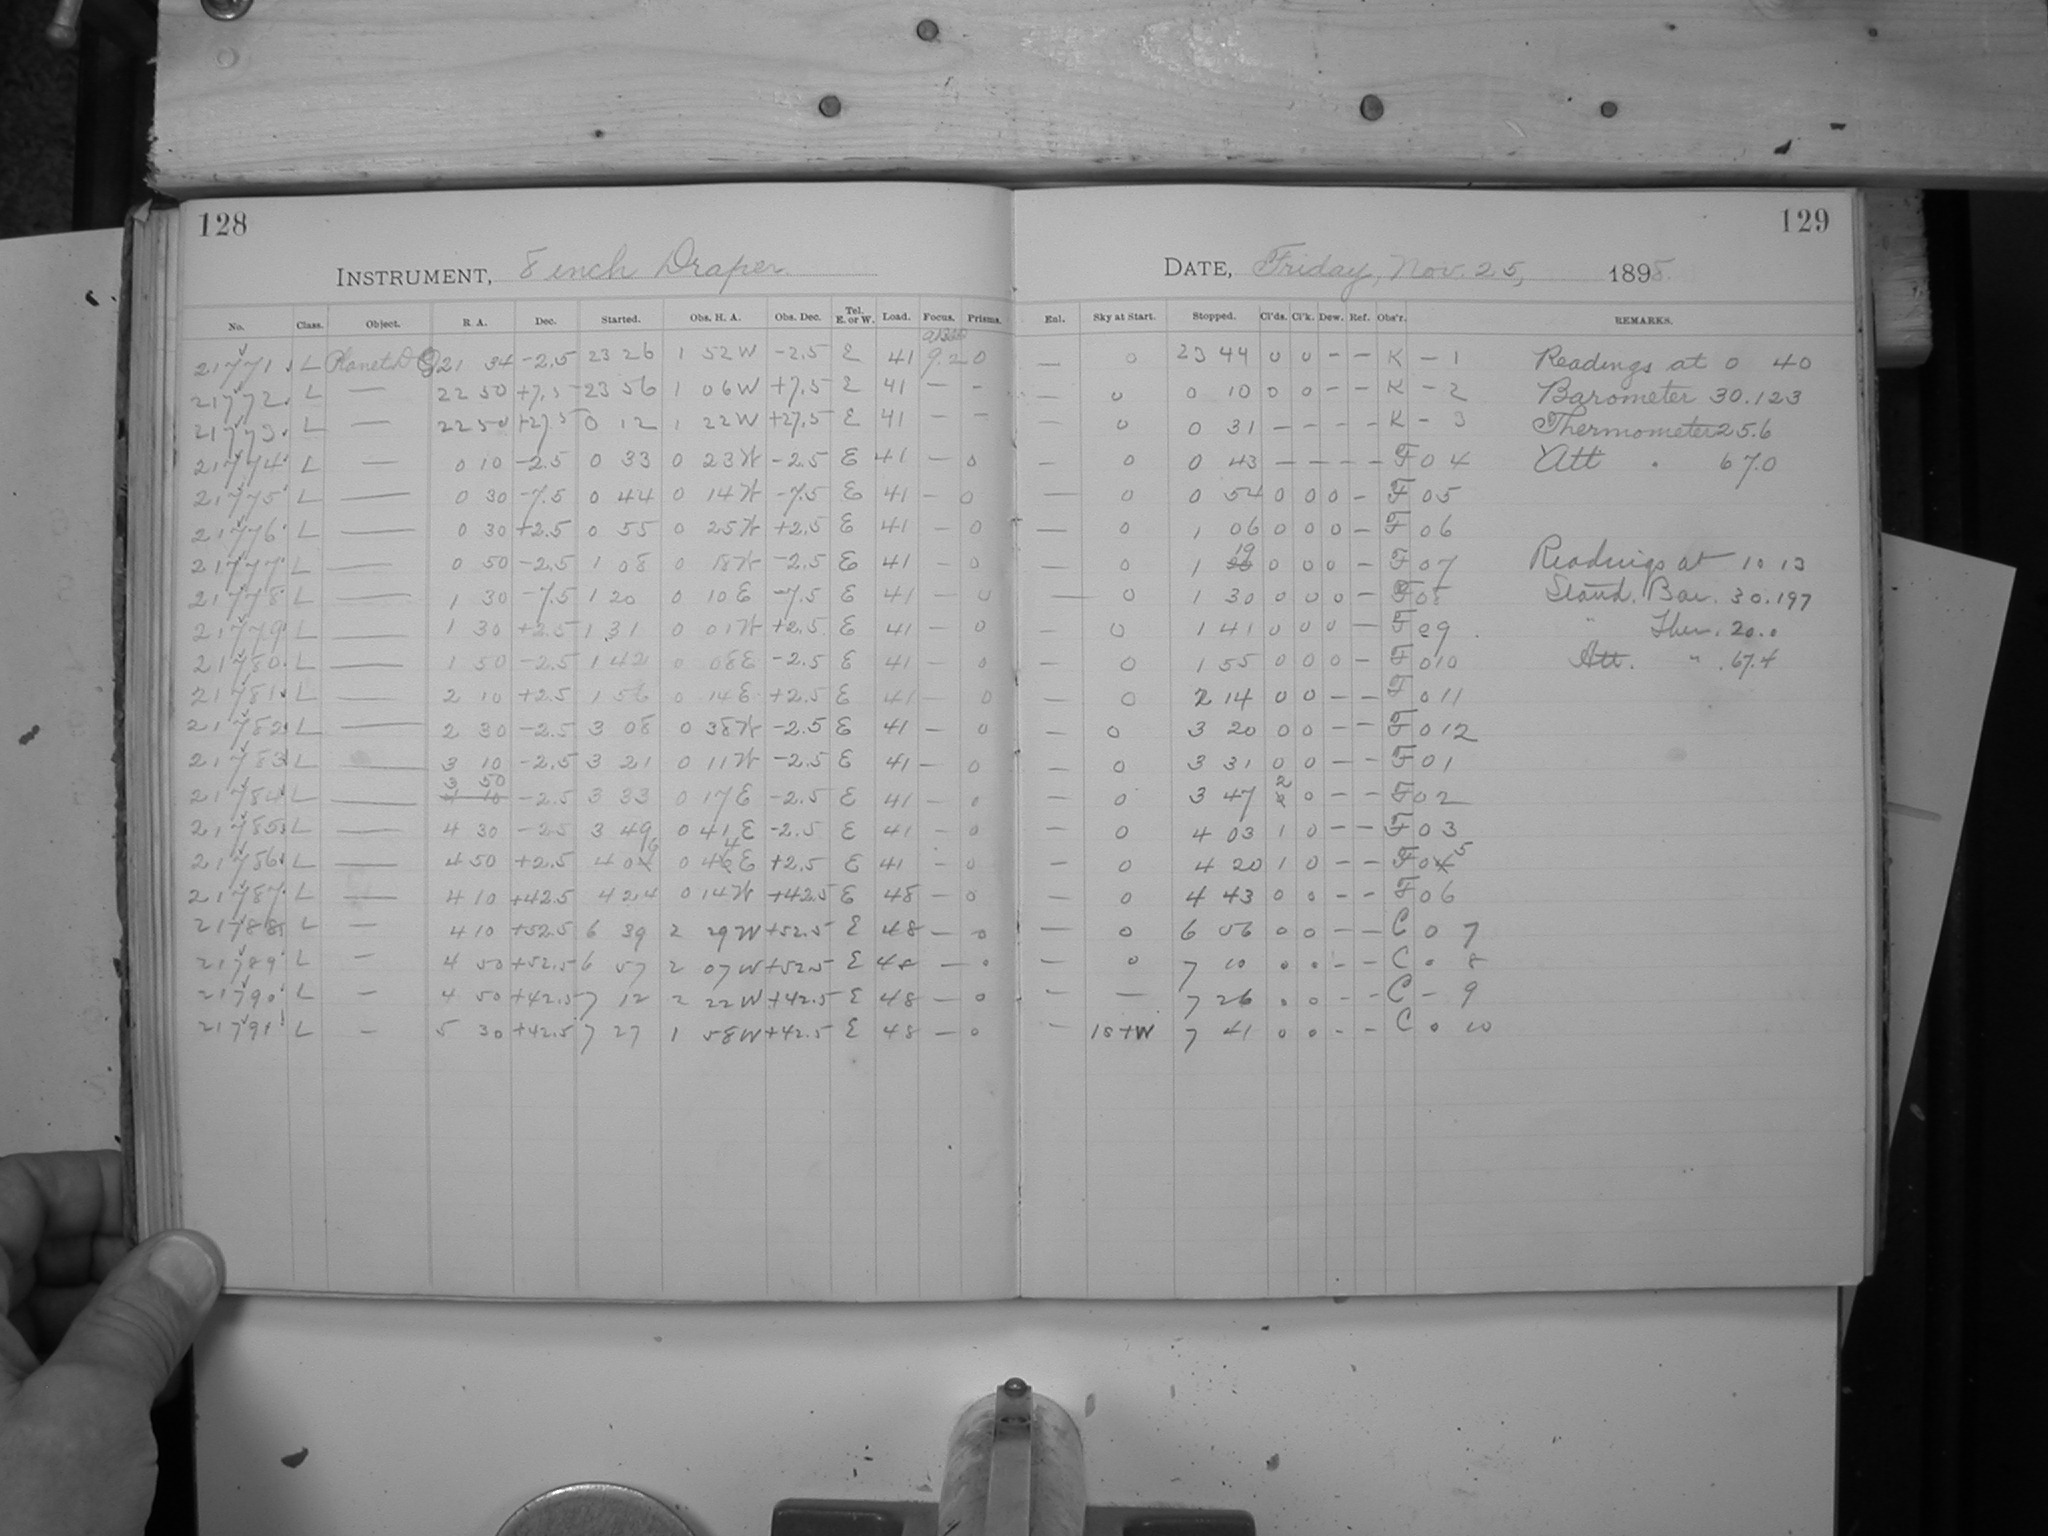 128
129
INSTRUMENT, 8 inch Draper
DATE, Friday, Nov. 25, 1898.
No. Class. Object. R. A. Dec. Started. Obs. H. A. Obs. Dec. Tel. E. or W. Load. Focus. Prisms. Enl. Sky at Start. Stopped. Cl'ds. Cl'k. Dew. Ref. Obs'r. REMARKS.
21771 L Planet 21 34 -2.5 23 26 1 52 W -2.5 E 41 9.20 — 0 23 44 0 0 - - K - 1 Readings at 0 40
21772 L — 22 50 +7.5 23 56 1 06 W +7.5 E 41 - - — 0 0 10 0 0 - - K - 2 Barometer 30.123
21773 L — 22 50 +27.5 0 12 1 22 W +27.5 E 41 - - — 0 0 31 - - - - K - 3 Thermometer 25.6
21774 L — 0 10 -2.5 0 33 0 23 W -2.5 E 41 - 0 — 0 0 43 - - - - F 0 4 Att " 67.0
21775 L — 0 30 -7.5 0 44 0 14 W -7.5 E 41 - 0 — 0 0 54 0 0 0 - F 0 5
21776 L — 0 30 +2.5 0 55 0 25 W +2.5 E 41 - 0 — 0 1 06 0 0 0 - F 0 6
21777 L — 0 50 -2.5 1 08 0 18 W -2.5 E 41 - 0 — 0 1 19 0 0 0 - F 0 7 Readings at 10 13
21778 L — 1 30 -7.5 1 20 0 10 E -7.5 E 41 - 0 — 0 1 30 0 0 0 - F 0 8 Stand. Bar. 30.197
21779 L — 1 30 +2.5 1 31 0 01 W +2.5 E 41 - 0 — 0 1 41 0 0 0 - F 0 9 " Ther. 20.0
21780 L — 1 50 -2.5 1 42 0 08 E -2.5 E 41 - 0 — 0 1 55 0 0 0 - F 0 10 Att. " 67.4
21781 L — 2 10 +2.5 1 56 0 14 E +2.5 E 41 - 0 — 0 2 14 0 0 - - F 0 11
21782 L — 2 30 -2.5 3 08 0 38 W -2.5 E 41 - 0 — 0 3 20 0 0 - - F 0 12
21783 L — 3 10 -2.5 3 21 0 11 W -2.5 E 41 - 0 — 0 3 31 0 0 - - F 0 1
21784 L — 3 50 4 10 -2.5 3 33 0 17 E -2.5 E 41 - 0 — 0 3 47 2 0 - - F 0 2
21785 L — 4 30 -2.5 3 49 0 41 E -2.5 E 41 - 0 — 0 4 03 1 0 - - F 0 3
21786 L — 4 50 +2.5 4 06 0 44 E +2.5 E 41 - 0 — 0 4 20 1 0 - - F 0 5
21787 L — 4 10 +42.5 4 24 0 14 W +42.5 E 48 - 0 — 0 4 43 0 0 - - F 0 6
21788 L — 4 10 +52.5 6 39 2 29 W +52.5 E 48 - 0 — 0 6 56 0 0 - - C 0 7
21789 L — 4 50 +52.5 6 57 2 07 W +52.5 E 48 - 0 — 0 7 10 0 0 - - C 0 8
21790 L — 4 50 +42.5 7 12 2 22 W +42.5 E 48 - 0 — — 7 26 0 0 - - C - 9
21791 L — 5 30 +42.5 7 27 1 58 W +42.5 E 48 - 0 — 7 41 0 0 - - C 0 10